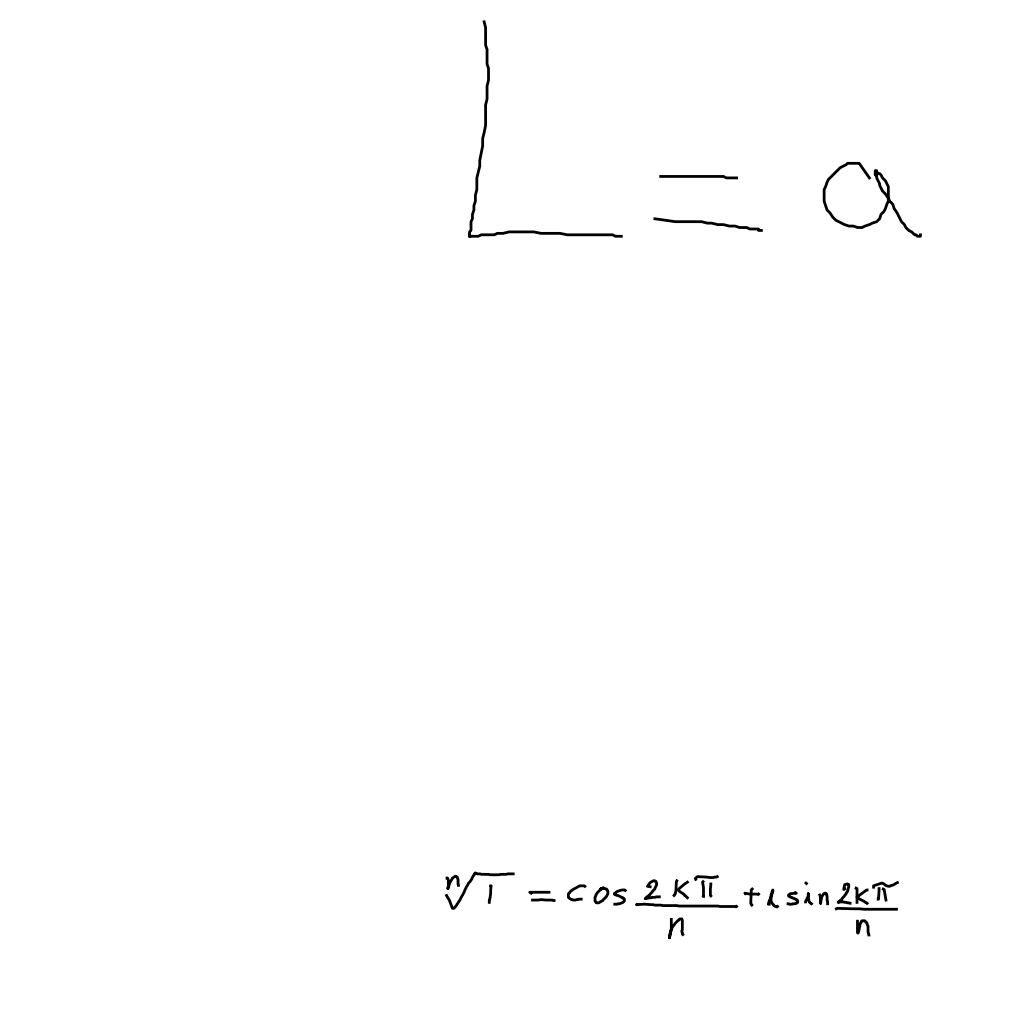 L = a
ⁿ√1 = cos 2kπ/n + i sin 2kπ/n